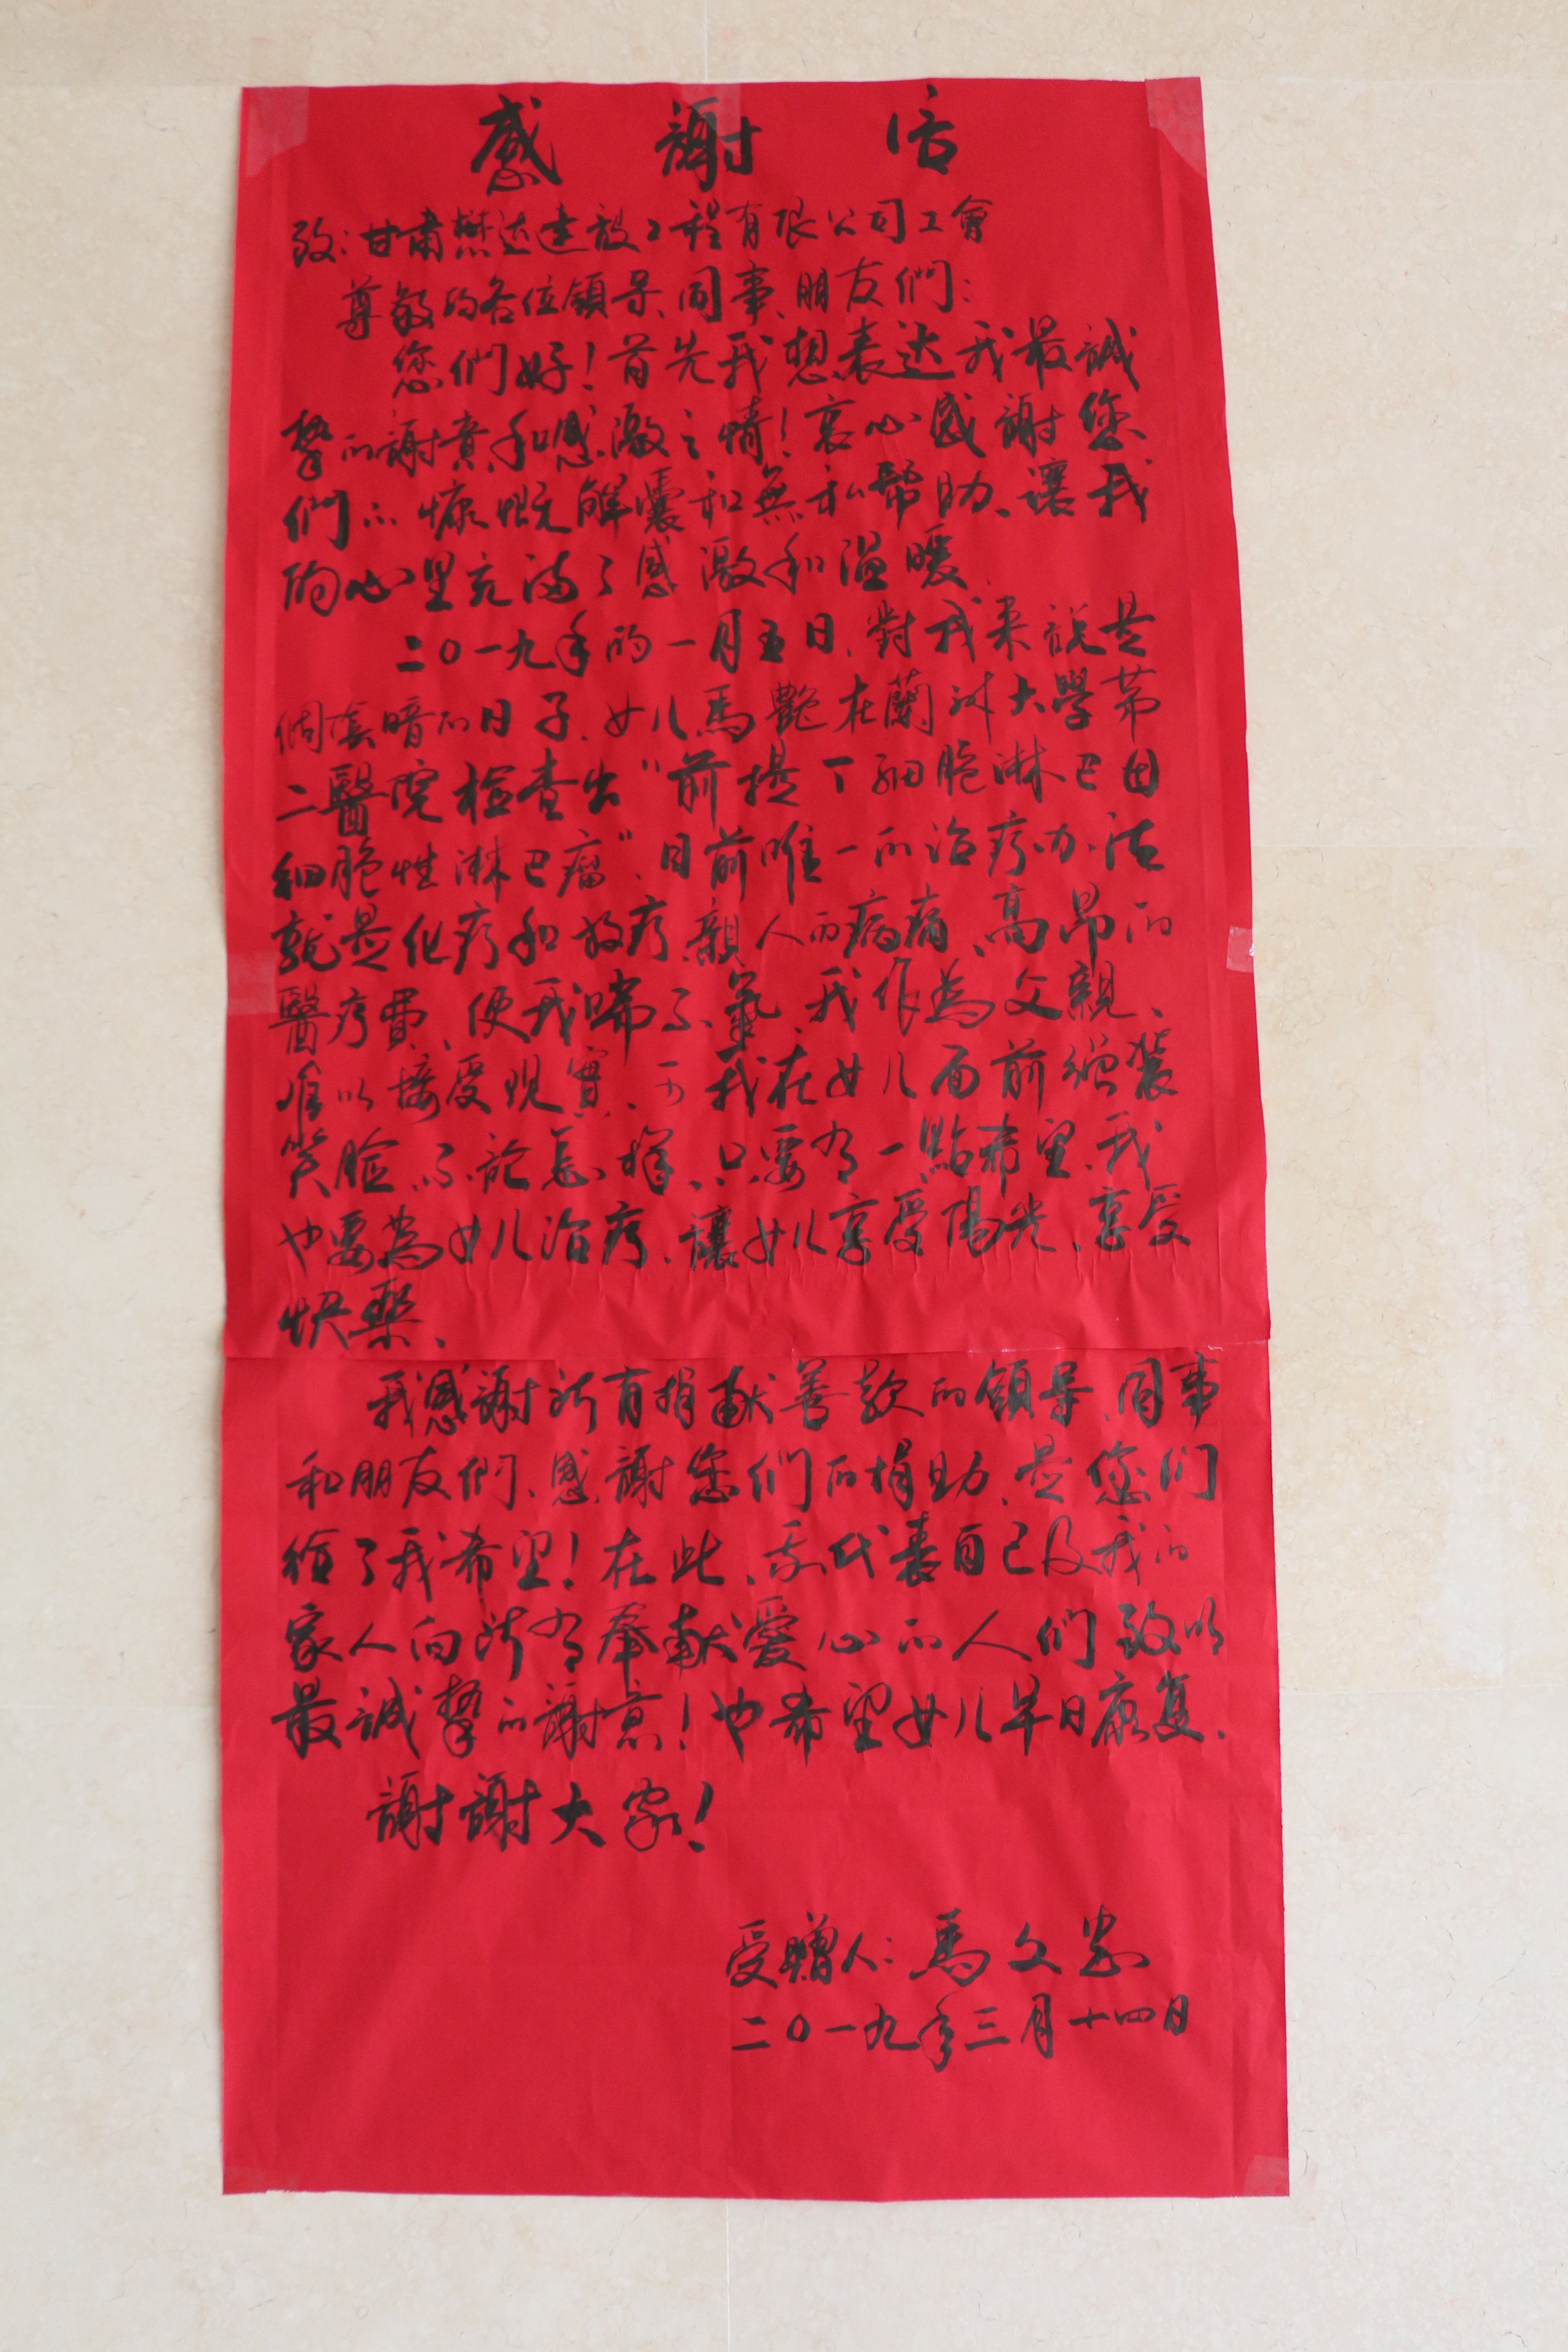 感謝信
致：甘肅懋达建設工程有限公司工會
尊敬的各位領导、同事、朋友們：
您們好！首先我想表达我最誠
摯的謝意和感激之情！衷心感謝您
們的慷慨解囊和無私幫助、讓我
的心里充滿了感激和温暖、
二〇一九年的一月五日、對我来說是
個灰暗的日子、女儿馬艷在蘭州大學第
二醫院檢查出“前提丁細胞淋巴因
細胞性淋巴瘤”、目前唯一的治疗办法
就是化疗和放疗、親人的病痛、高昂的
醫疗費、使我喘不氣、我作為父親、
难以接受现實、可我在女儿面前强装
笑脸、不論怎样、只要有一點希望、我
也要為女儿治疗、讓女儿享受陽光、享受
快樂、
我感謝所有捐献善款的領导、同事
和朋友們、感謝您們的捐助、是您们
给了我希望！在此、我代表自己及我的
家人向所有奉献愛心的人们致以
最誠摯的謝意！也希望女儿早日康复、
謝謝大家！
受贈人：馬文忠
二〇一九年三月十四日